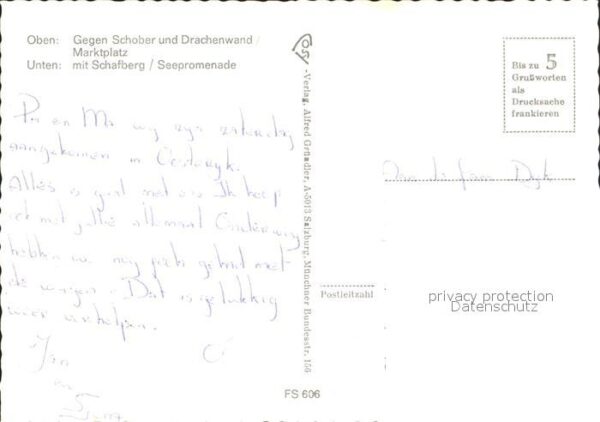 Oben: Gegen Schober und Drachenwand /
Marktplatz
Unten: mit Schafberg / Seepromenade
Pa en Ma wij zijn zaterdag
aangekomen in Oostenrijk.
Alles is goed met ons Ik hoop
ook met jullie allemaal
hebben we met
de wagen. Dat is gelukkig
weer verholpen.
Jan
en
-Verlag, Alfred Gründler, A-5013 Salzburg, Münchner Bundesstr. 156
Bis zu 5
Grußworten
als
Drucksache
frankieren
Postleitzahl
privacy protection
Datenschutz
FS 606